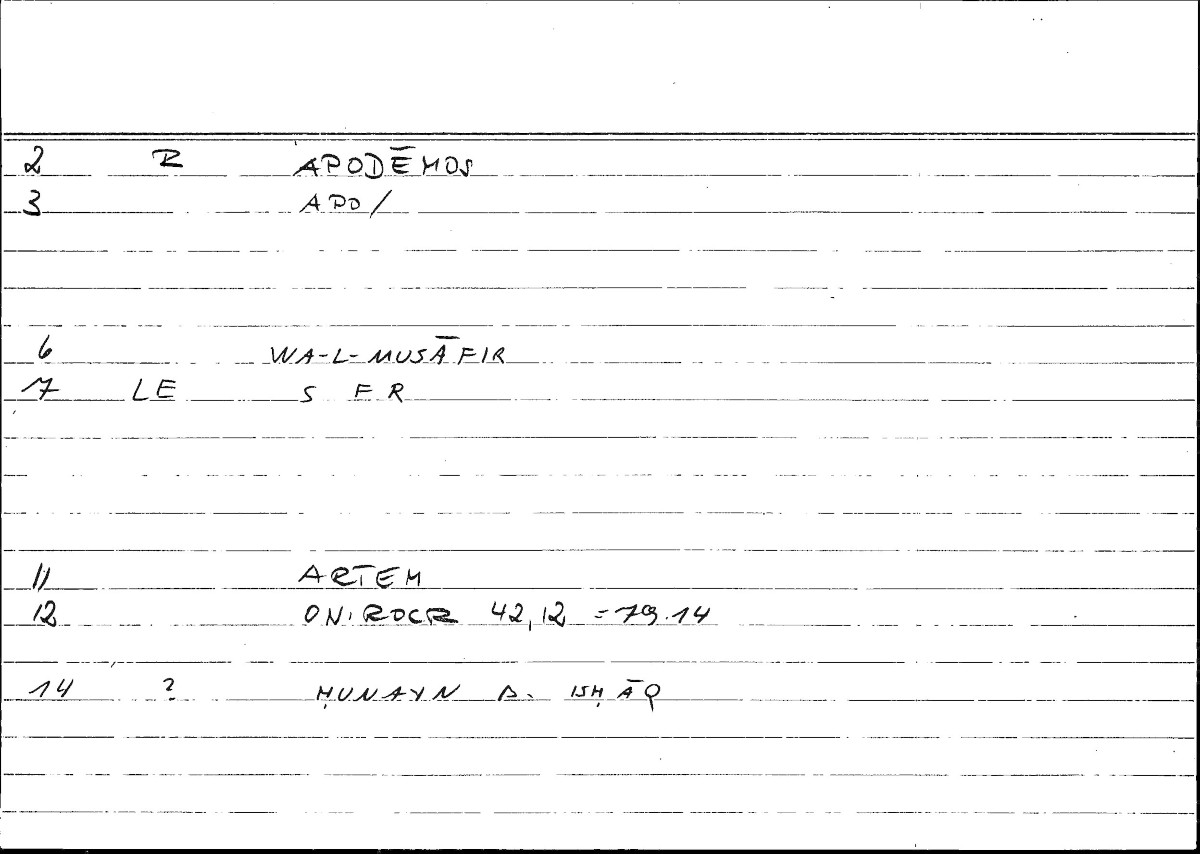 2 R APODĒMOS
3 APO/
6 WA-L-MUSĀFIR
7 LE S F R
11 ARTEM
12 ONIROCR 42,12 = 79.14
14 ? ḤUNAYN B. ISḤĀQ